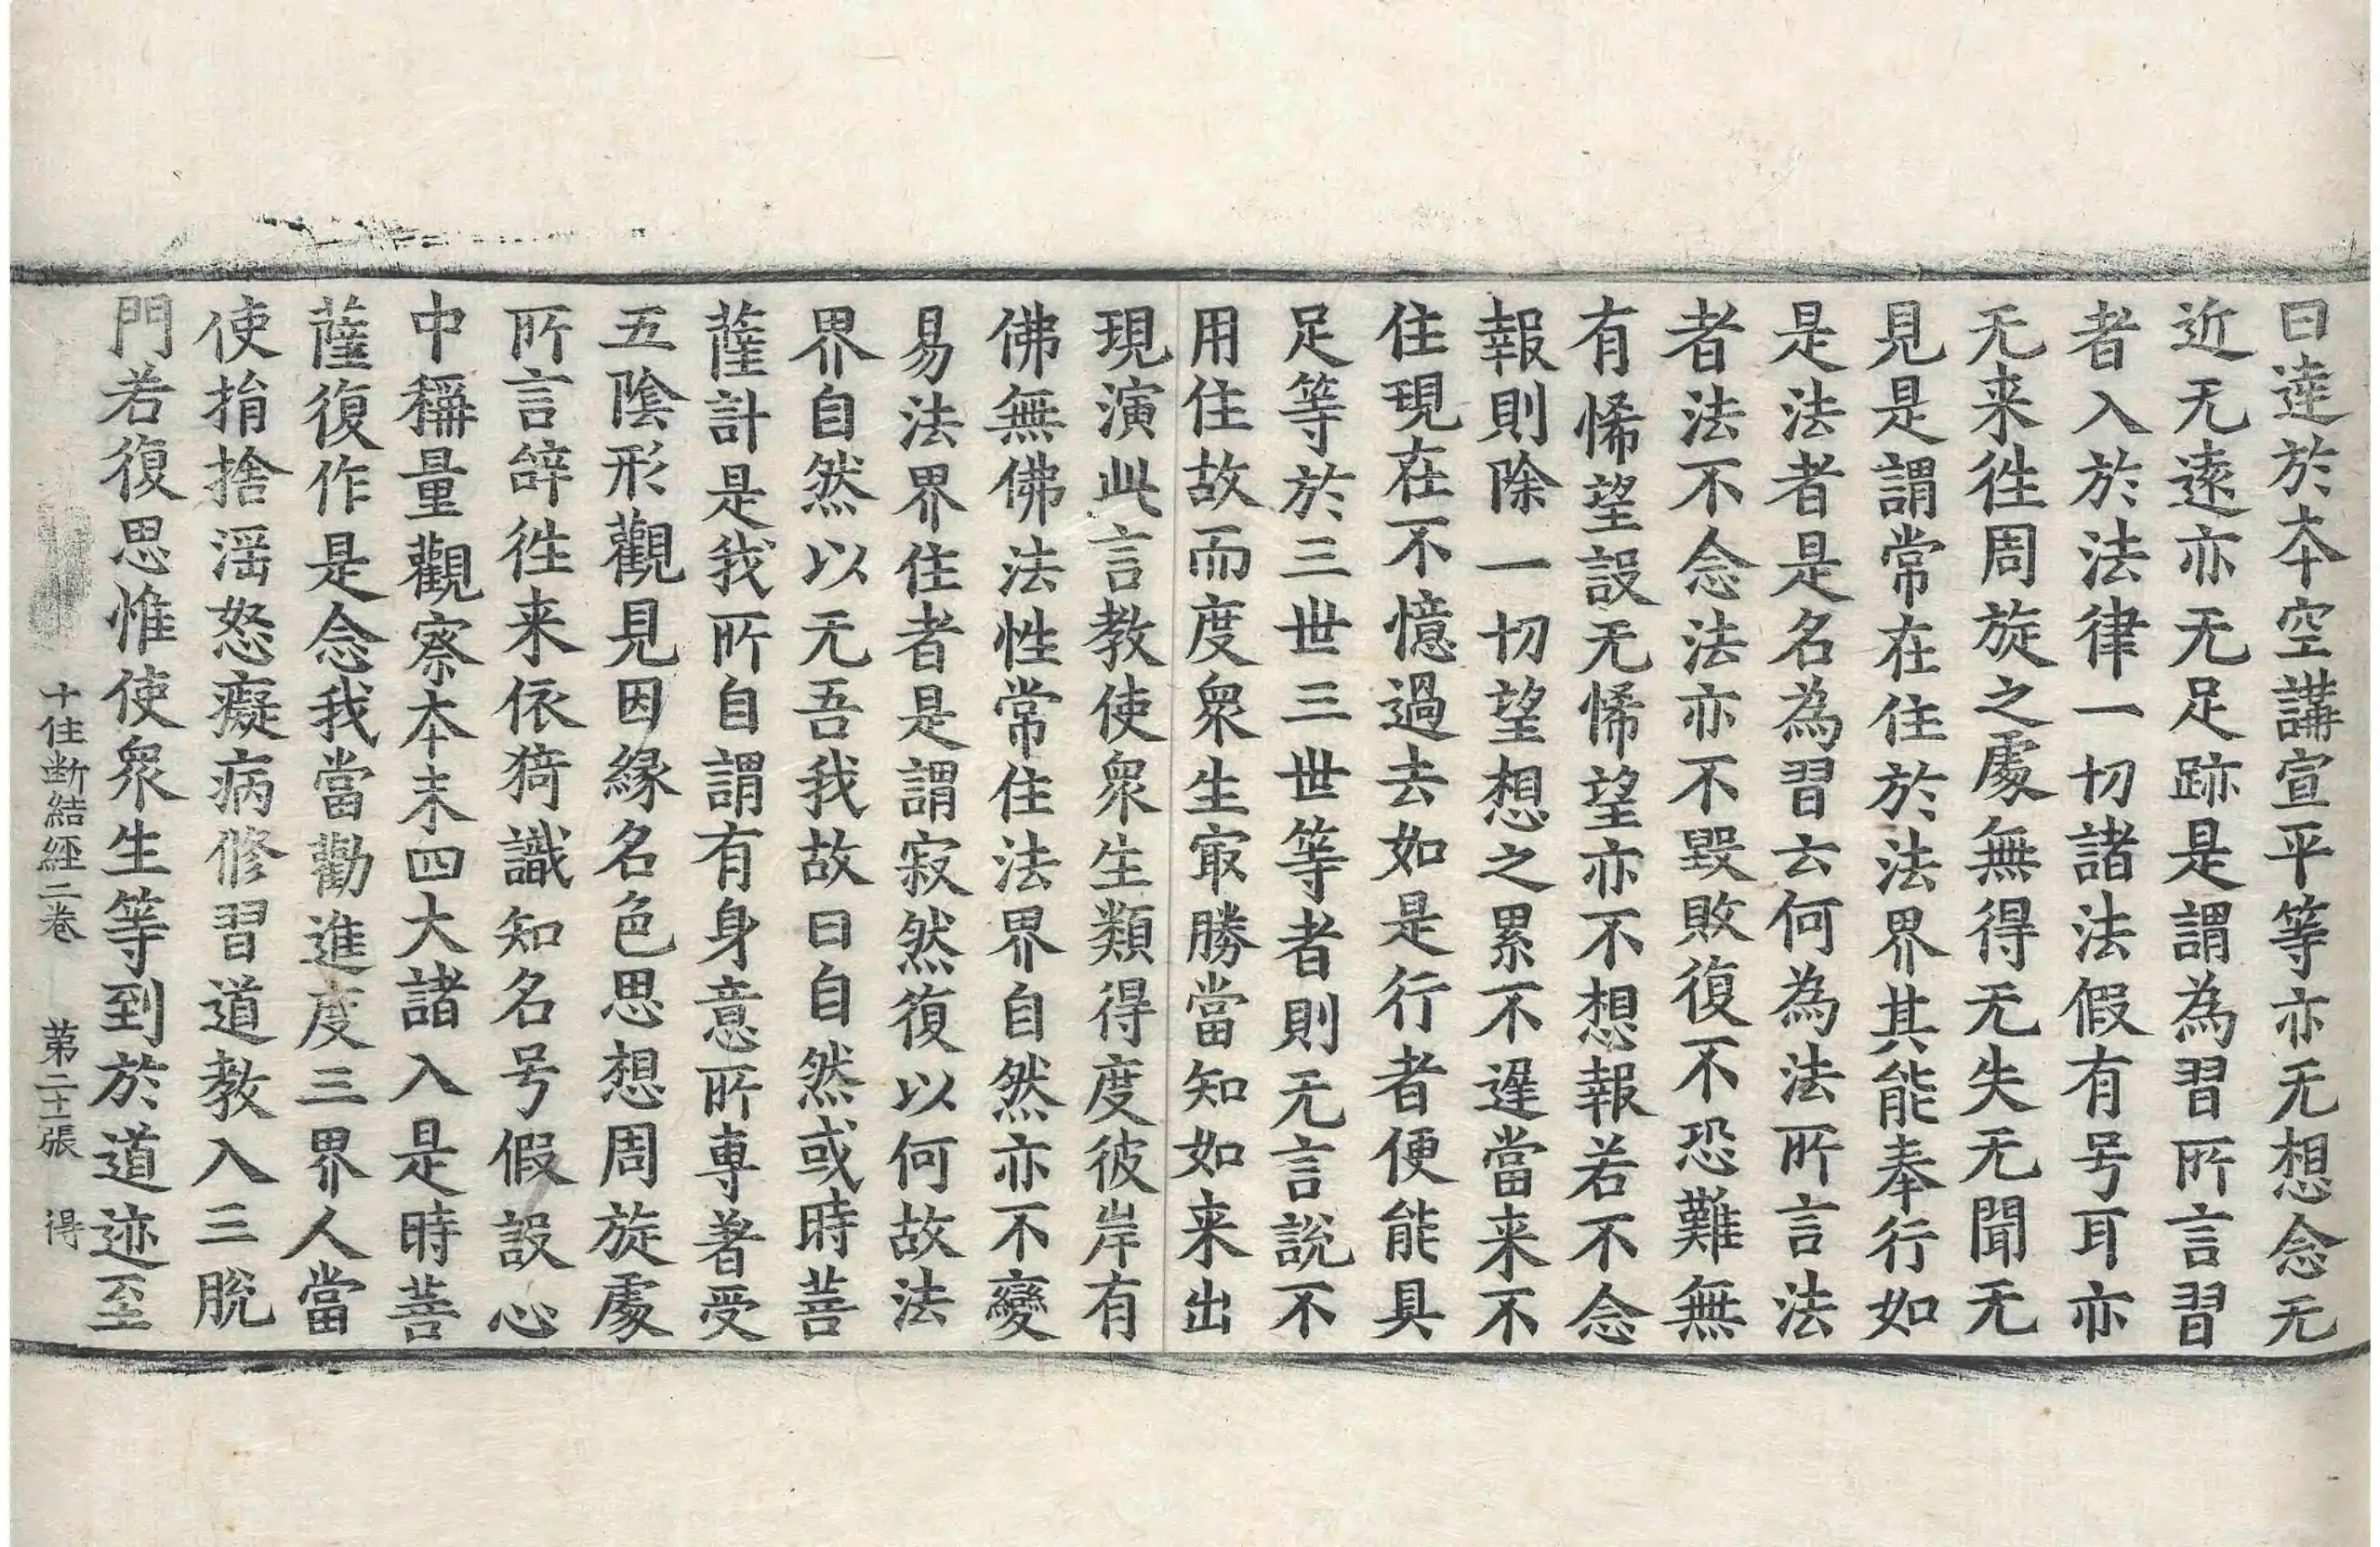 曰達於本空講宣平等亦无想念无
近无遠亦无足跡是謂為習所言習
者入於法律一切諸法假有号耳亦
无来徃周旋之處無得无失无聞无
見是謂常在住於法界其能奉行如
是法者是名為習云何為法所言法
者法不念法亦不毀敗復不恐難無
有悕望設无悕望亦不想報若不念
報則除一切望想之累不遲當来不
住現在不憶過去如是行者便能具
足等於三世三世等者則无言説不
用住故而度衆生冣勝當知如来出
現演此言教使衆生類得度彼岸有
佛無佛法性常住法界自然亦不變
易法界住者是謂寂然復以何故法
界自然以无吾我故曰自然或時菩
薩計是我所自謂有身意所専著受
五陰形觀見因縁名色思想周旋處
所言辝徃来依猗識知名号假設心
中稱量觀察本末四大諸入是時菩
薩復作是念我當勸進度三界人當
使捐捨滛怒癡病修習道教入三脫
門若復思惟使衆生等到於道迹至
十住断結經二卷　第二十張　得